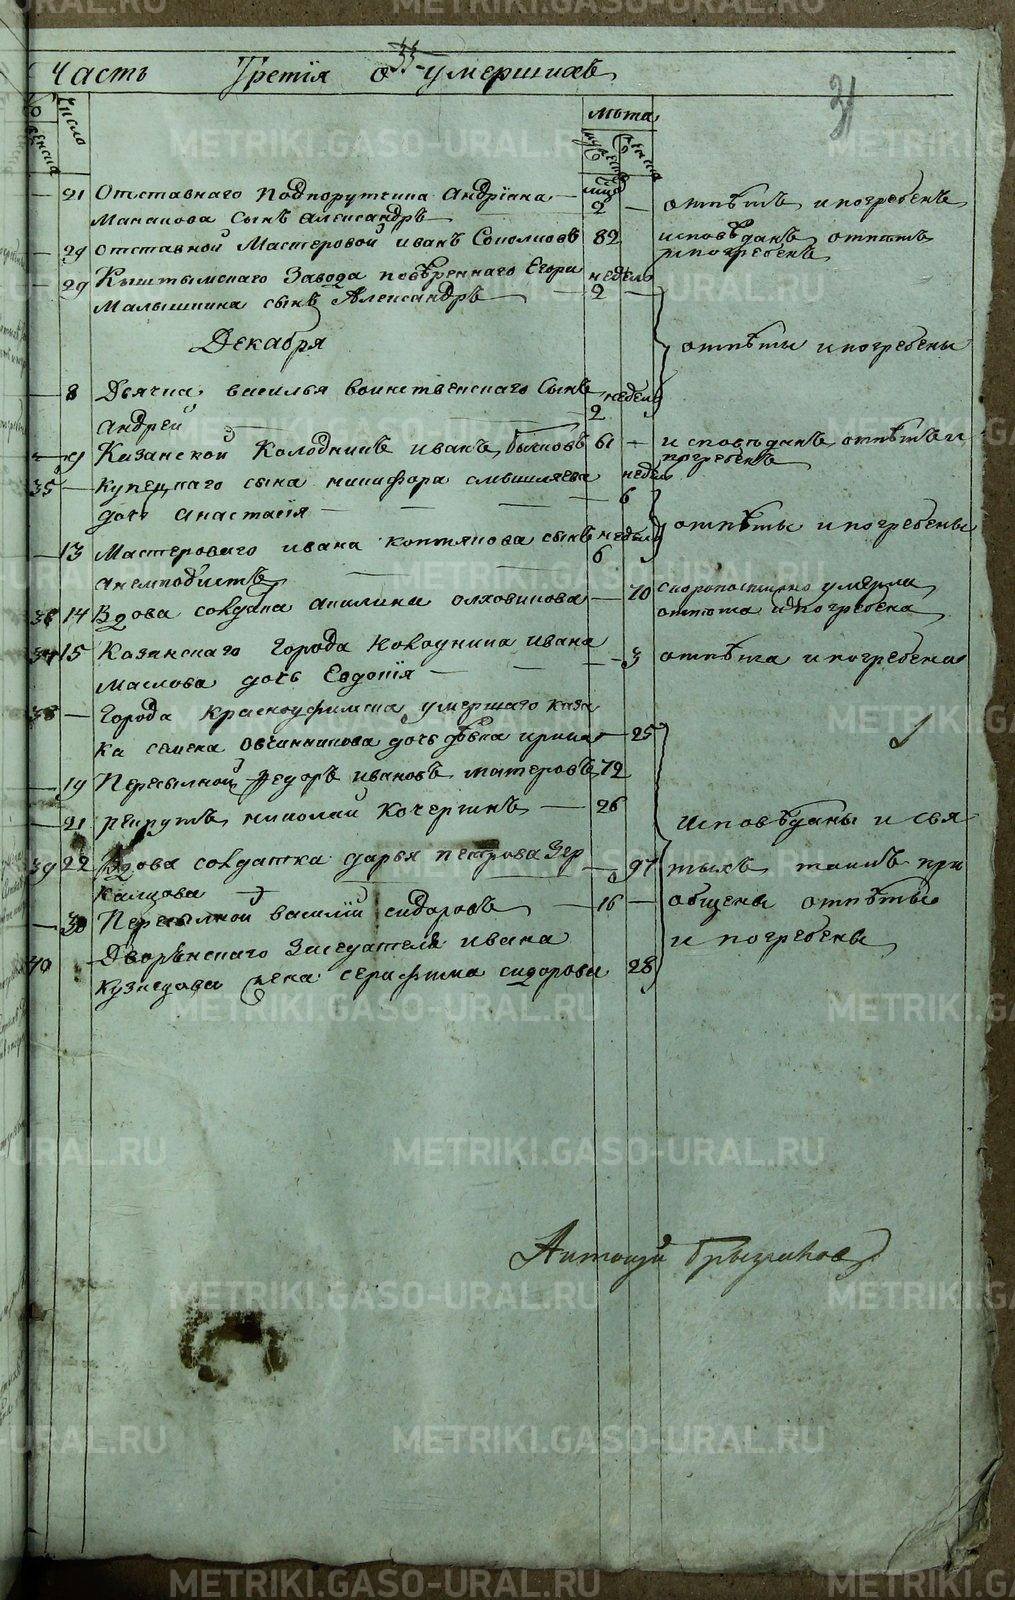 Часть Третія о умершихъ
33
31
Число
лѣта
21 Отставнаго Подпорутчика Андріяна
сынъ Александръ 2 — отпѣтъ и погребенъ
29 отставной Мастеровой иванъ 82 исповѣданъ отпѣтъ
и погребенъ
29 Кыштымскаго Завода повѣреннаго Егора недѣль
Малышкина сынъ Александръ — 2 —
Декабря
отпѣты и погребены
8 Дьячка василья воинственскаго Сынъ недѣль
Андрей 2
9 Казанской Колодникъ иванъ быковъ 61 — исповѣданъ отпѣтъ и
погребенъ
35 — купецкаго сына никифора смышляева недѣль
дочь анастасія — 6
отпѣты и погребены
13 Мастероваго ивана сынъ недѣль
6
36 14 Вдова солдатка акилина — 70 скоропостижно умерла
отпѣта и погребена
37 15 Казанскаго города ивана
Маслова дочь Евдокія — 3 отпѣта и погребена
38 — Города красноуфимска умершаго каза
ка семена овчинникова дочь дѣвка ирина — 25
19 Пересылной Федоръ ивановъ 72
21 рекрутъ николай Кочергинъ — 26
исповѣданы и свя
39 22 Вдова солдатка дарья петрова Зер — 97 тыхъ таинъ прі
калцова
30 Пересылной василій сидоровъ — 16 — общены отпѣты
и погребены
40 Дворянскаго Заседателя ивана
кузнецова жена серафима сидорова 28
Антоній
METRIKI.GASO-URAL.RU